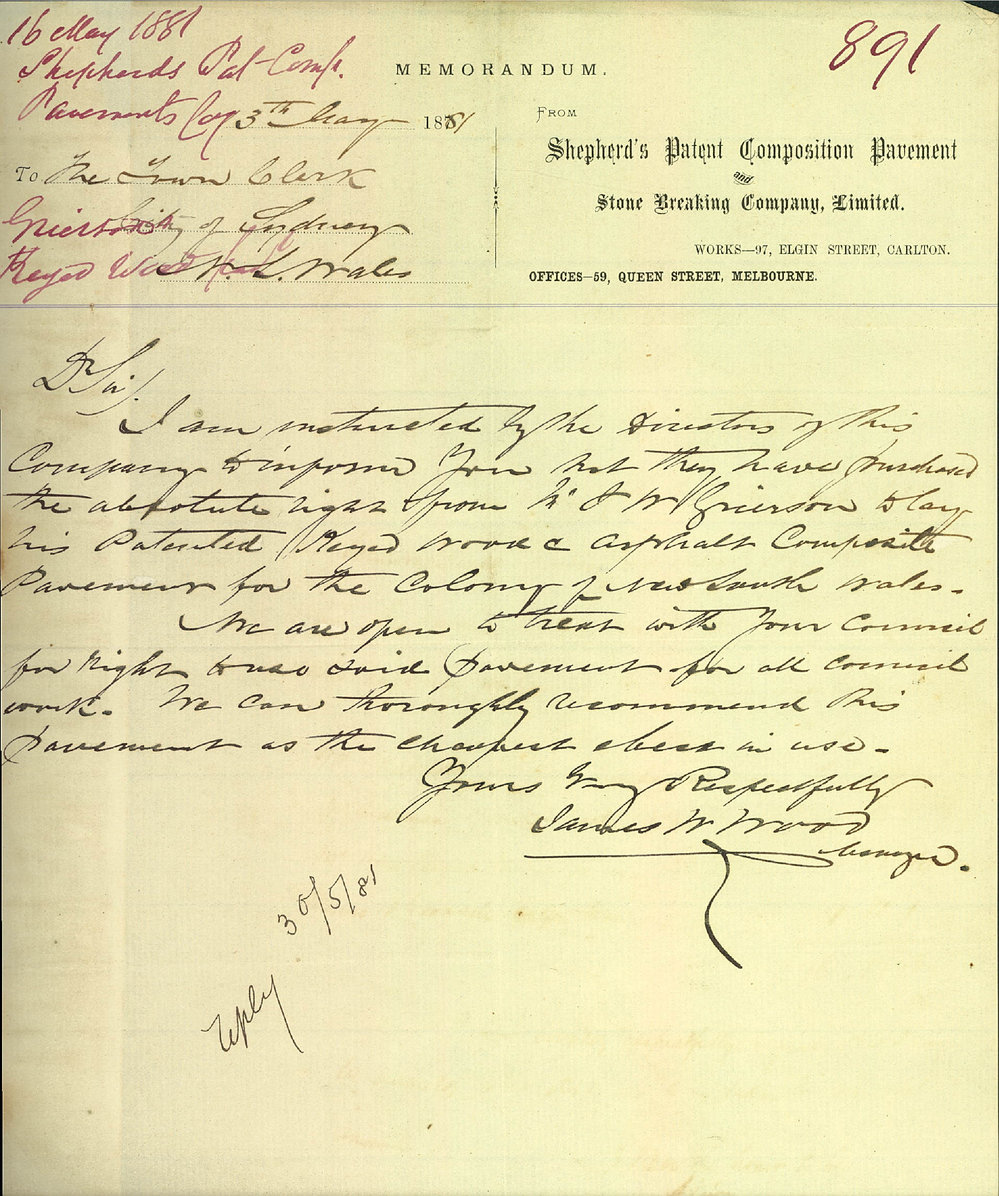 16 May 1881
Shepherds Pat Comp.
Pavements Coy
891
MEMORANDUM.
3th May 1881
To The Town Clerk
City of Sydney
N. S. Wales
Grierson's
Keyed Wood
FROM
Shepherd's Patent Composition Pavement
and
Stone Breaking Company, Limited.
WORKS—97, ELGIN STREET, CARLTON.
OFFICES—59, QUEEN STREET, MELBOURNE.
Dr Sir/.
I am instructed by the Directors of this
Company to inform You that they have purchased
the absolute right from Mr J W Grierson to lay
his Patented Keyed Wood & Asphalt Composite
Pavement for the Colony of New South Wales.
We are open to treat with Your Council
for right to use said Pavement for all Council
work. We can thoroughly recommend this
Pavement as the cheapest & best in use.
Yours Very Respectfully
James W Wood
Manager.
30/5/81
reply